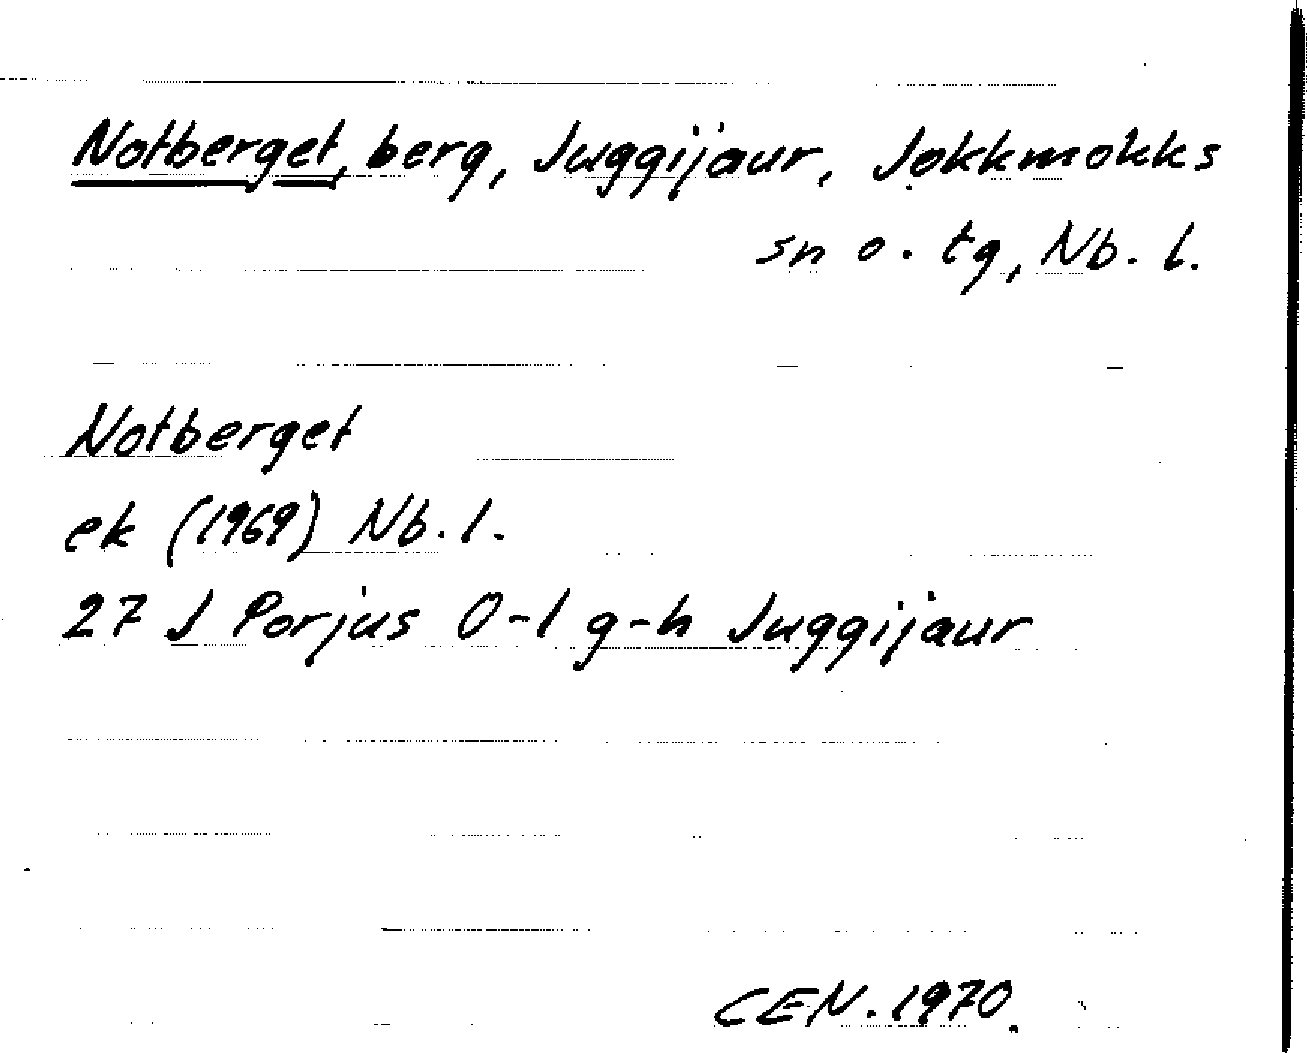 Notberget, berg, Juggijaur, Jokkmokks
sn o. tg, Nb. l.
Notberget
ek (1969) Nb. l.
27 J Porjus 0-1 g-h Juggijaur
CEN. 1970.